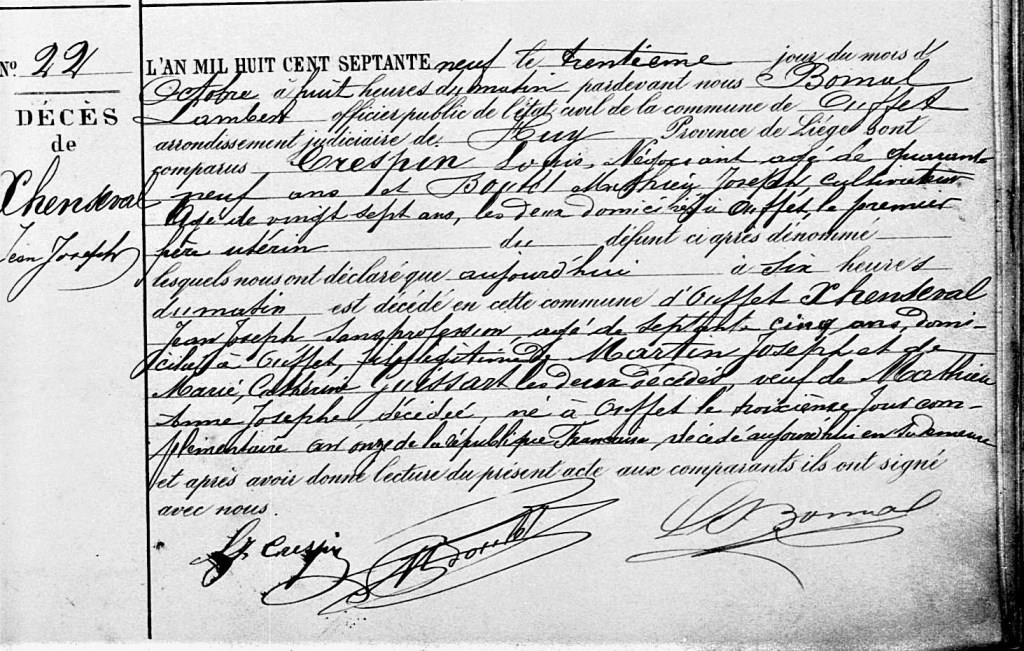 Nº 22
DÉCÈS
de
Xhenseval
Jean Joseph
L'AN MIL HUIT CENT SEPTANTE neuf le trentième jour du mois d'
Octobre à huit heures du matin pardevant nous Bomal
Lambert officier public de l'état civil de la commune de Ouffet
arrondissement judiciaire de Huy Province de Liége sont
comparus Crespin Louis, Négociant agé de quarant-
neuf ans et Mathieu Joseph, cultivateur
Agé de vingt sept ans, les deux domiciliés à Ouffet, le premier
frère utérin du défunt ci après dénommé
lesquels nous ont déclaré que aujourd'hui à six heures
du matin est décédé en cette commune d'Ouffet Xhenseval
Jean Joseph Sans profession agé de septante cinq ans, domi-
cilié à Ouffet, fils légitime de Martin Joseph et de
Marie Catherine Guissart les deux décédés, veuf de Mathieu
Anne Josephe, décédée, né à Ouffet le troixième jour com-
plémentaire an onze de la république Française, décédé aujourd'hui en sa demeure
et après avoir donné lecture du présent acte aux comparants ils ont signé
avec nous.
Ls. Crespin
Bomal